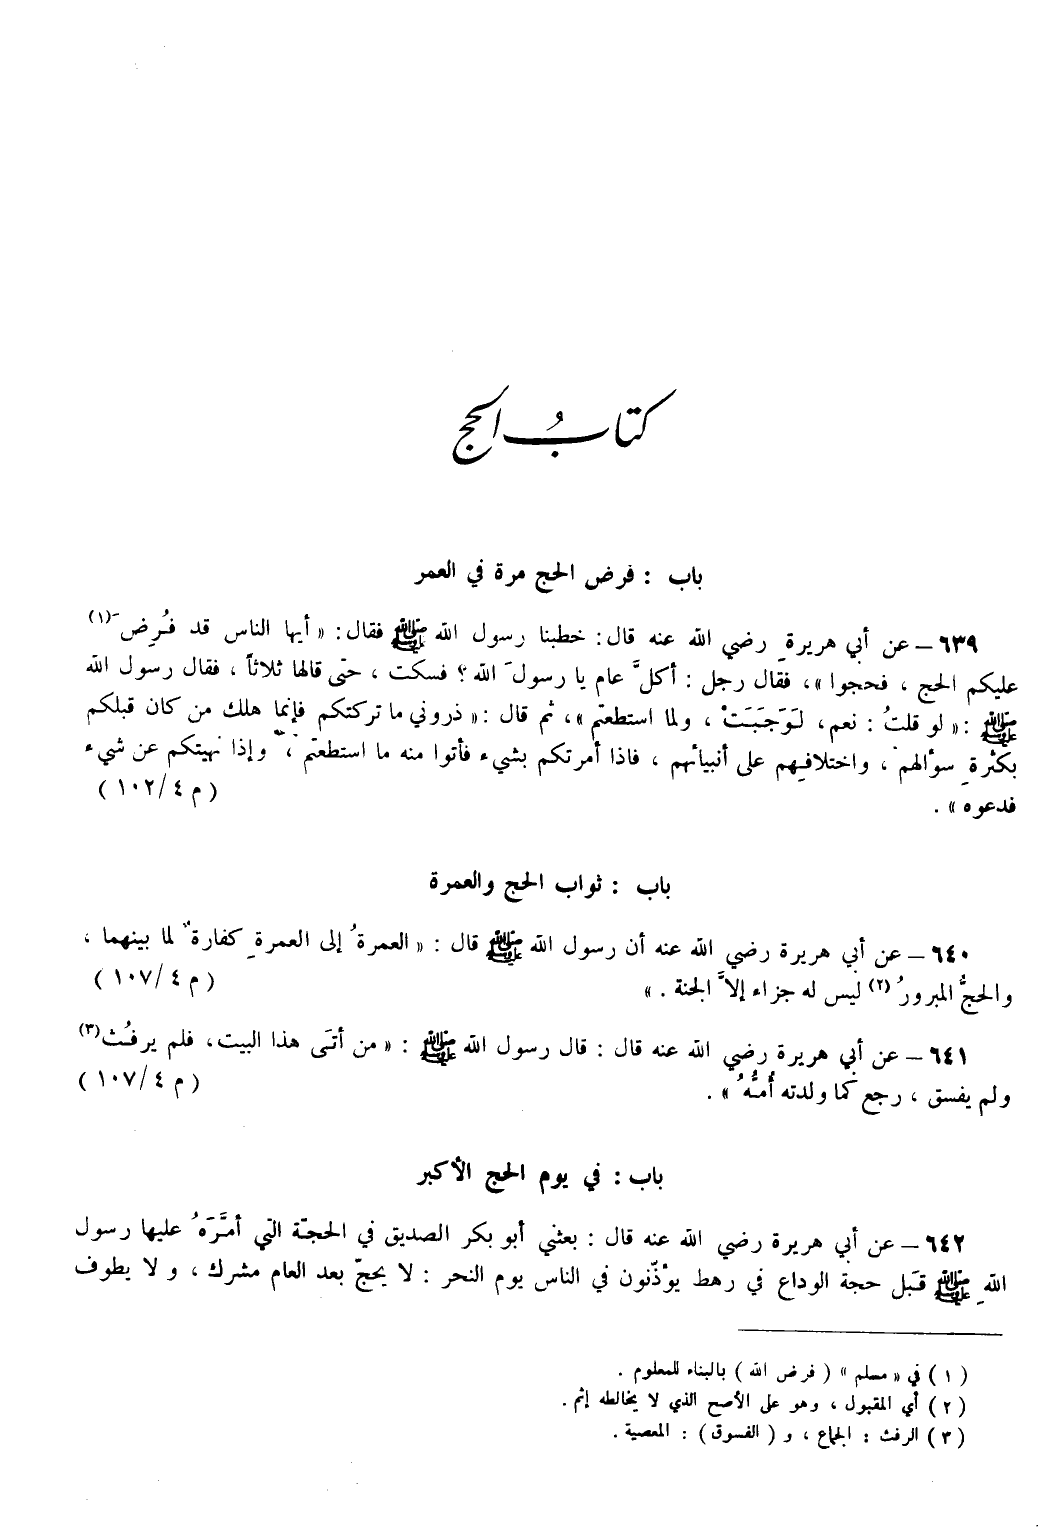 كتابُ الحج
باب : فرض الحج مرة في العمر
٦٣٩ – عن أبي هريرةِ رضي الله عنه قال: خطبنا رسول الله ﷺ فقال: « أيها الناس قد فُرِضَ (١)
عليكم الحج ، فحجوا »، فقال رجل : أكلَّ عام يا رسولَ الله ؟ فسكت ، حتى قالها ثلاثاً ، فقال رسول الله
ﷺ :« لو قلتُ : نعم، لَوَجَبَتْ ، ولما استطعتم »، ثم قال :« ذروني ما تركتكم فإنما هلك من كان قبلكم
بكثْرةِ سؤالهم ، واختلافِهم على أنبيائهم ، فاذا أمرتكم بشيء فأتوا منه ما استطعتم ، وإذا نهيتكم عن شيء
فدعوه » . ( م ٤/ ١٠٢ )
باب : ثواب الحج والعمرة
٦٤٠ – عن أبي هريرة رضي الله عنه أن رسول الله ﷺ قال : « العمرةُ إلى العمرةِ كفارةٌ لما بينهما ،
والحجُّ المبرورُ (٢) ليس له جزاء إلاَّ الجنة . » ( م ٤/ ١٠٧ )
٦٤١ – عن أبي هريرة رضي الله عنه قال : قال رسول الله ﷺ : « من أتَى هذا البيت، فلم يرفُث (٣)
ولم يفسق ، رجع كما ولدته أُمُّهُ » . ( م ٤/ ١٠٧ )
باب : في يوم الحج الأكبر
٦٤٢ – عن أبي هريرة رضي الله عنه قال : بعثني أبو بكر الصديق في الحجّة التي أمَّرَهُ عليها رسول
اللهِ ﷺ قَبل حجة الوداع في رهط يؤذّنون في الناس يوم النحر : لا يحجّ بعد العام مشرك ، و لا يطوف
( ١ ) في « مسلم » ( فرض الله ) بالبناء للمعلوم .
( ٢ ) أي المقبول ، وهو على الأصح الذي لا يخالطه إثم .
( ٣ ) الرفث : الجماع ، و ( الفسوق ) : المعصية .